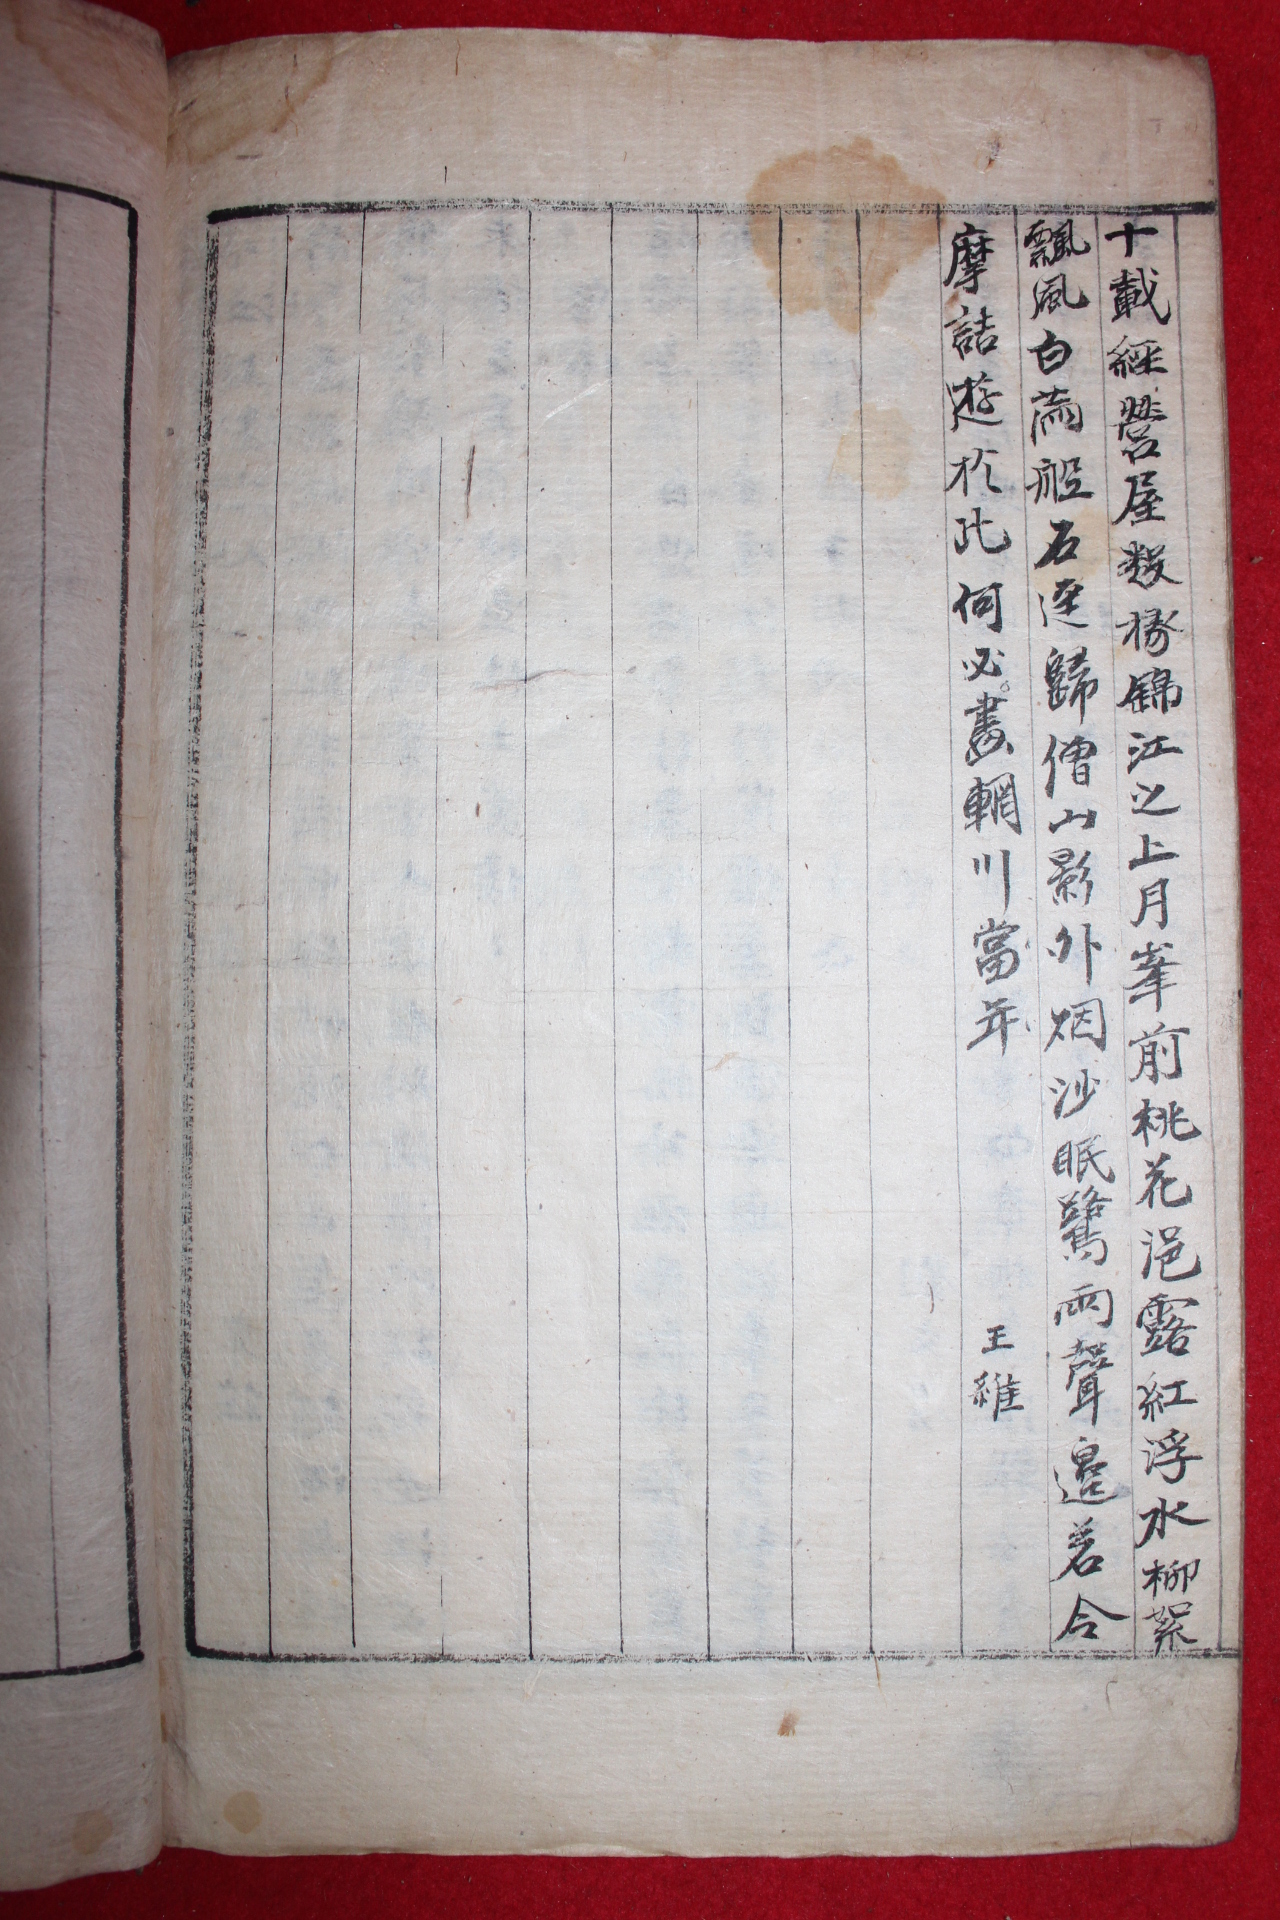 十載經營屋數椽錦江之上月峯前桃花浥露紅浮水柳絮
飄風白滿船石逕歸僧山影外烟沙眠鷺雨聲邊若令
摩詰遊於此何必畫輞川當年　王維